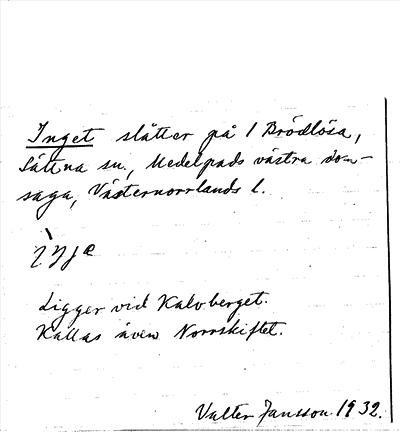 Inget slåtter på 1 Brödlösa,
Sättna sn., Medelpads västra dom-
saga, Västernorrlands l.
Ligger vid Kalvberget.
Kallas även Norrskiftet.
Valter Jansson 1932.